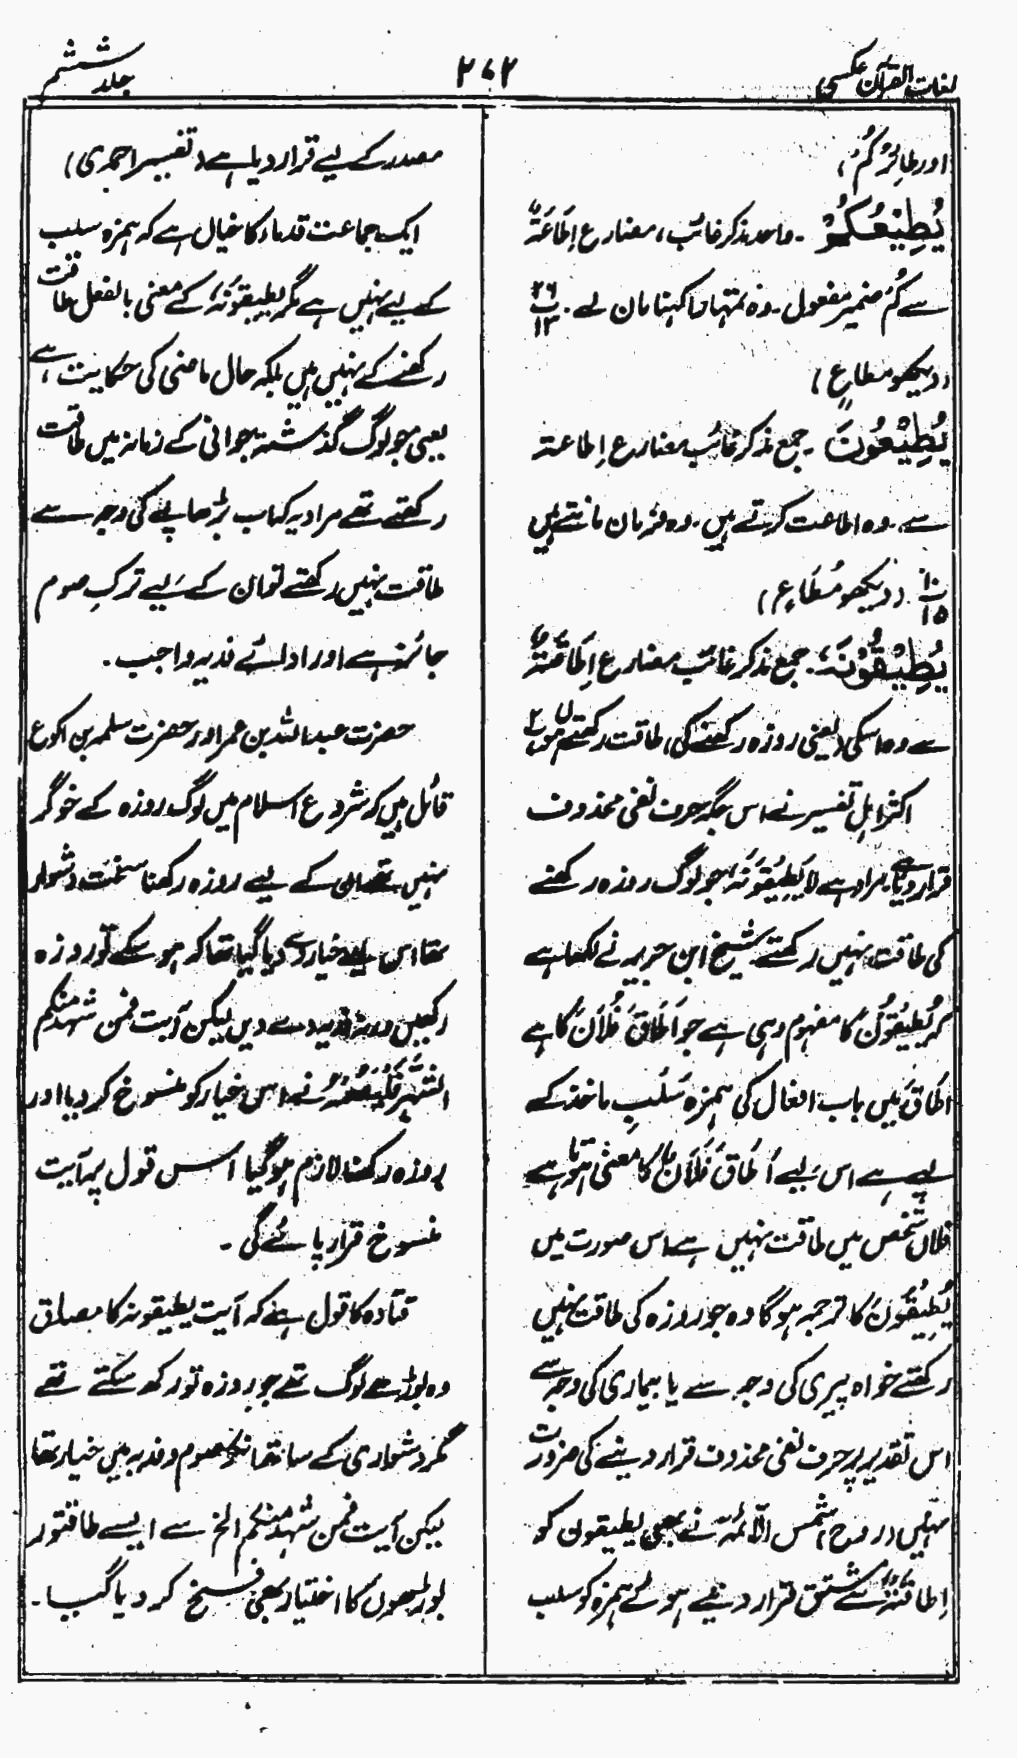 لغات القرآن عکسی
۲۷۲
جلد ششم
اور طَائِرُکُمْ)
یُطِیْعُکُمْ ۔ واحد مذکر غائب، مضارع اِطَاعَۃٌ
سے کُمْ ضمیر مفعول۔ وہ تمہارا کہنا مان لے۔ پ ۲۶ ۱۳
(دیکھو مطاعٍ)
یُطِیْعُوْنَ ۔ جمع مذکر غائب مضارع اِطاعۃ
سے۔ وہ اطاعت کرتے ہیں۔ وہ فرمان مانتے ہیں
پ ۱۰ ۱۵ (دیکھو مُطَاعٍ)
یُطِیْقُوْنَہٗ۔ جمع مذکر غائب مضارع اِطَاقَۃٌ
سے وہ اسکی (یعنی روزہ رکھنے کی) طاقت رکھتے ہوں پ ۲
اکثر اہلِ تفسیر نے اس جگہ حرف نفی محذوف
قرار دیا ہے مراد ہے لَا یُطِیْقُوْنَہٗ جو لوگ روزہ رکھنے
کی طاقت نہیں رکھتے شیخ ابن جریر نے لکھا ہے
کہ یُطِیْقُوْنَ کا مفہوم وہی ہے جو اَطَاقَ فُلَانٌ کا ہے
اَطَاقَ میں باب افعال کی ہمزہ سَلَبِ ماخذ کے
لیے ہے اس لیے اَطَاقَ فُلَانٌ کا معنی ہوتا ہے
فلاں شخص میں طاقت نہیں ہے اس صورت میں
یُطِیْقُوْنَ کا ترجمہ ہوگا وہ جو روزہ کی طاقت نہیں
رکھتے خواہ پیری کی وجہ سے یا بیماری کی وجہ سے
اس تقدیر پر حرف نفی محذوف قرار دینے کی ضرورت
نہیں (روح) شمس الائمہ نے بھی یطیقون کو
اِطاقۃٌ سے مشتق قرار دیتے ہوئے ہمزہ کو سلب
مصدر کے لیے قرار دیا ہے (تفسیر احمدی)
ایک جماعت قدماء کا خیال ہے کہ ہمزہ سلب
کے لیے نہیں ہے مگر یطیقُوْنَہٗ کے معنی بالفعل طاقت
رکھنے کے نہیں ہیں بلکہ حال ماضی کی حکایت ہے،
یعنی جو لوگ گذشتہ جوانی کے زمانہ میں طاقت
رکھتے تھے مراد یہ کہ اب بڑھاپے کی وجہ سے
طاقت نہیں رکھتے تو ان کے لیے ترکِ صوم
جائز ہے اور ادائے فدیہ واجب۔
حضرت عبداللہ بن عمر اور حضرت سلمہ بن اکوع
قائل ہیں کہ شروع اسلام میں لوگ روزہ کے خوگر
نہیں تھے ان کے لیے روزہ رکھنا سخت دشوار
تھا اس لیے اختیار دے دیا گیا تھا کہ ہو سکے تو روزہ
رکھیں ورنہ فدیہ دے دیں لیکن آیت فمن شَہِدَ منکم
الشَّہْرَ فَلْیَصُمْہُ نے اس خیار کو منسوخ کر دیا اور
روزہ رکھنا لازم ہوگیا اس قول پر آیت
منسوخ قرار پائے گی۔
قتادہ کا قول ہے کہ آیت یطیقونہ کا مصداق
وہ بوڑھے لوگ تھے جو روزہ تو رکھ سکتے تھے
مگر دشواری کے ساتھ انکو صوم و فدیہ میں خیار تھا
لیکن آیت فمن شَہِدَ منکم الخ سے ایسے طاقتور
بوڑھوں کا اختیار بھی نسخ کر دیا گیا۔